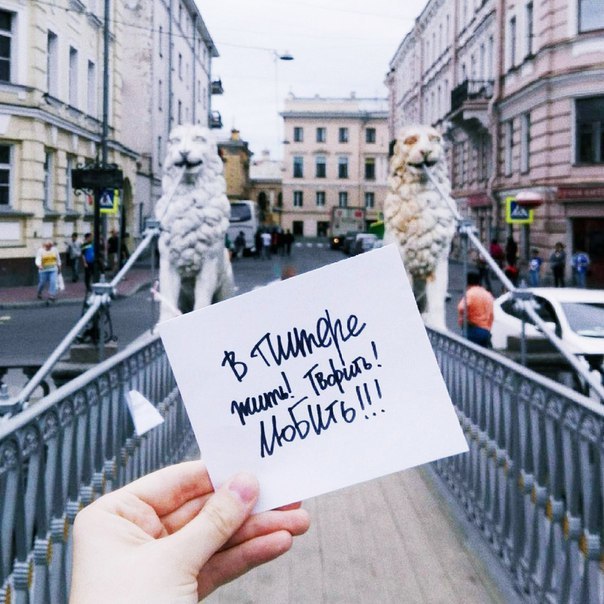 В Питере
жить! Творить!
Любить!!!